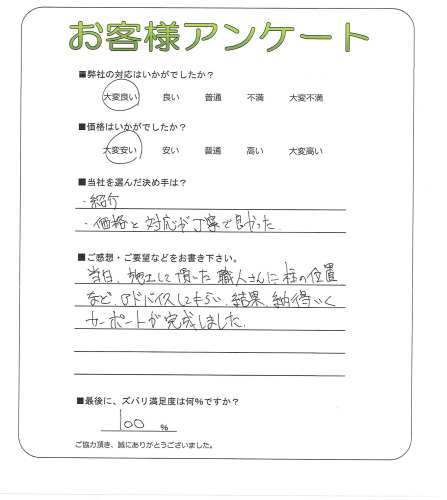 お客様アンケート
■弊社の対応はいかがでしたか？
大変良い 良い 普通 不満 大変不満
■価格はいかがでしたか？
大変安い 安い 普通 高い 大変高い
■当社を選んだ決め手は？
・紹介
・価格と対応が丁寧で良かった。
■ご感想・ご要望などをお書き下さい。
当日、施工して頂いた職人さんに柱の位置
など、アドバイスしてもらい、結果、納得いく
カーポートが完成しました。
■最後に、ズバリ満足度は何%ですか？
100 %
ご協力頂き、誠にありがとうございました。